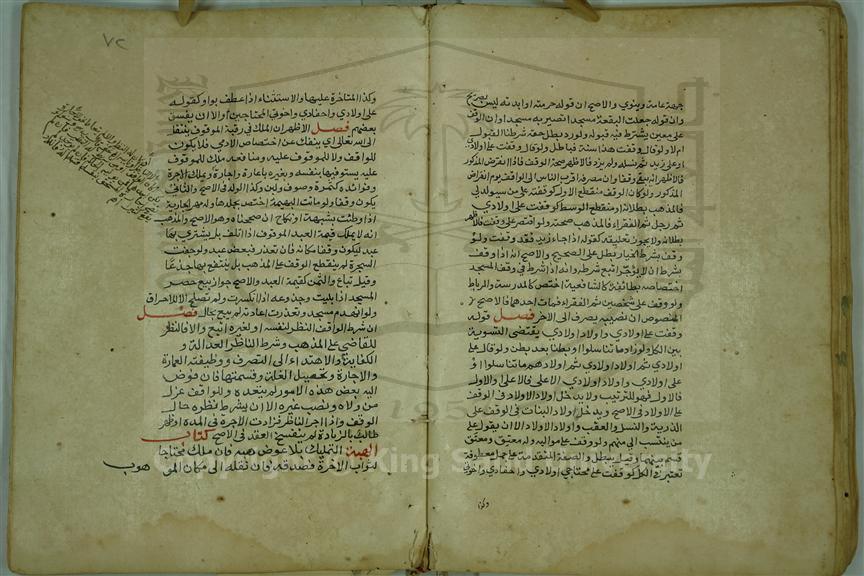 جهة عامة وينوي والاصح ان قوله حرمته او ابدته ليس بصريح
وان قوله جعلت البقعة مسجدا تصير به مسجدا وان الوقف
على معين يشترط فيه قبوله ولو رد بطل حقه شرطنا القبول
ام لا ولو قال وقفت هذا سنة فباطل ولو قال وقفت على اولادي
او على زيد ثم نسله ولم يزد فالاظهر صحة الوقف فاذا انقرض المذكور
فالاظهر انه يبقى وقفا وان مصرفه اقرب الناس الى الواقف يوم انقراض
المذكور ولو كان الوقف منقطع الاول كوقفته على من سيولد لي
فالمذهب بطلانه او منقطع الوسط كوقفت على اولادي
ثم رجل ثم الفقراء فالمذهب صحته ولو اقتصر على وقفت فالاظهر
بطلانه ولا يجوز تعليقه كقوله اذا جاء زيد فقد وقفت ولو
وقف بشرط الخيار بطل على الصحيح والاصح انه اذا وقف
بشرط ان لا يؤجر اتبع شرطه وانه اذا شرط في وقف المسجد
اختصاصه بطائفة كالشافعية اختص كالمدرسة والرباط
ولو وقف على شخصين ثم الفقراء فمات احدهما فالاصح
المنصوص ان نصيبه يصرف الى الاخر فصل قوله
وقفت على اولادي واولاد اولادي يقتضي التسوية
بين الكل ولو زاد ما تناسلوا او بطنا بعد بطن ولو قال على
اولادي ثم اولاد اولادي ثم اولادهم ما تناسلوا او
على اولادي واولاد اولادي الاعلى فالاعلى والاول
فالاول فهو للترتيب ولا يدخل اولاد الاولاد في الوقف
على الاولاد في الاصح ويدخل اولاد البنات في الوقف على
الذرية والنسل والعقب واولاد الاولاد الا ان يقول على
من ينتسب الي منهم ولو وقف على مواليه وله معتق ومعتق
قسم بينهما وقيل يبطل والصفة المتقدمة على جمل معطوفة
تعتبر في الكل كوقفت على محتاجي اولادي واحفادي واخوتي
وكذا
٧٢
وكذا المتاخرة عليها والاستثناء اذا عطف بواو كقوله
على اولادي واحفادي واخوتي المحتاجين او الا ان يفسق
بعضهم فصل الاظهر ان الملك في رقبة الموقوف ينتقل
الى الله تعالى اي ينفك عن اختصاص الادمي فلا يكون
للواقف ولا للموقوف عليه ومنافعه ملك للموقوف
عليه يستوفيها بنفسه وبغيره باعارة واجارة ويملك الاجرة
وفوائده كثمرة وصوف ولبن وكذا الولد في الاصح والثاني
يكون وقفا ولو ماتت البهيمة اختص بجلدها وله مهر الجارية
اذا وطئت بشبهة او نكاح ان صححناه وهو الاصح والمذهب
انه لا يملك قيمة العبد الموقوف اذا اتلف بل يشتري بها
عبد ليكون وقفا مكانه فان تعذر فبعض عبد ولو جفت
الشجرة لم ينقطع الوقف على المذهب بل ينتفع بها جذعا
وقيل تباع والثمن كقيمة العبد والاصح جواز بيع حصر
المسجد اذا بليت وجذوعه اذا انكسرت ولم تصلح الا للاحراق
ولو انهدم مسجد وتعذرت اعادته لم يبع بحال فصل
ان شرط الواقف النظر لنفسه او لغيره اتبع والا فالنظر
للقاضي على المذهب وشرط الناظر العدالة و
الكفاية والاهتداء الى التصرف ووظيفته العمارة
والاجارة وتحصيل الغلة وقسمتها فان فوض
اليه بعض هذه الامور لم يتعده وللواقف عزل
من ولاه ونصب غيره الا ان يشرط نظره حال
الوقف واذا اجر الناظر فزادت الاجرة في المدة او ظهر
طالب بالزيادة لم ينفسخ العقد في الاصح كتاب
الهبة التمليك بلا عوض هبة فان ملك محتاجا
لثواب الاخرة فصدقة فان نقله الى مكان المو
هوب